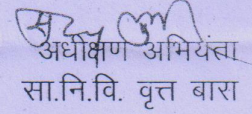 अधीक्षण अभियंता
सा.नि.वि. वृत्त बारा